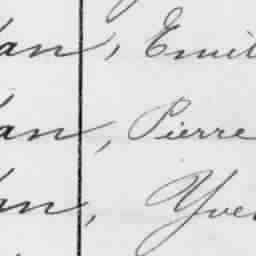 an, Emil
an, Pierre
an, Yve